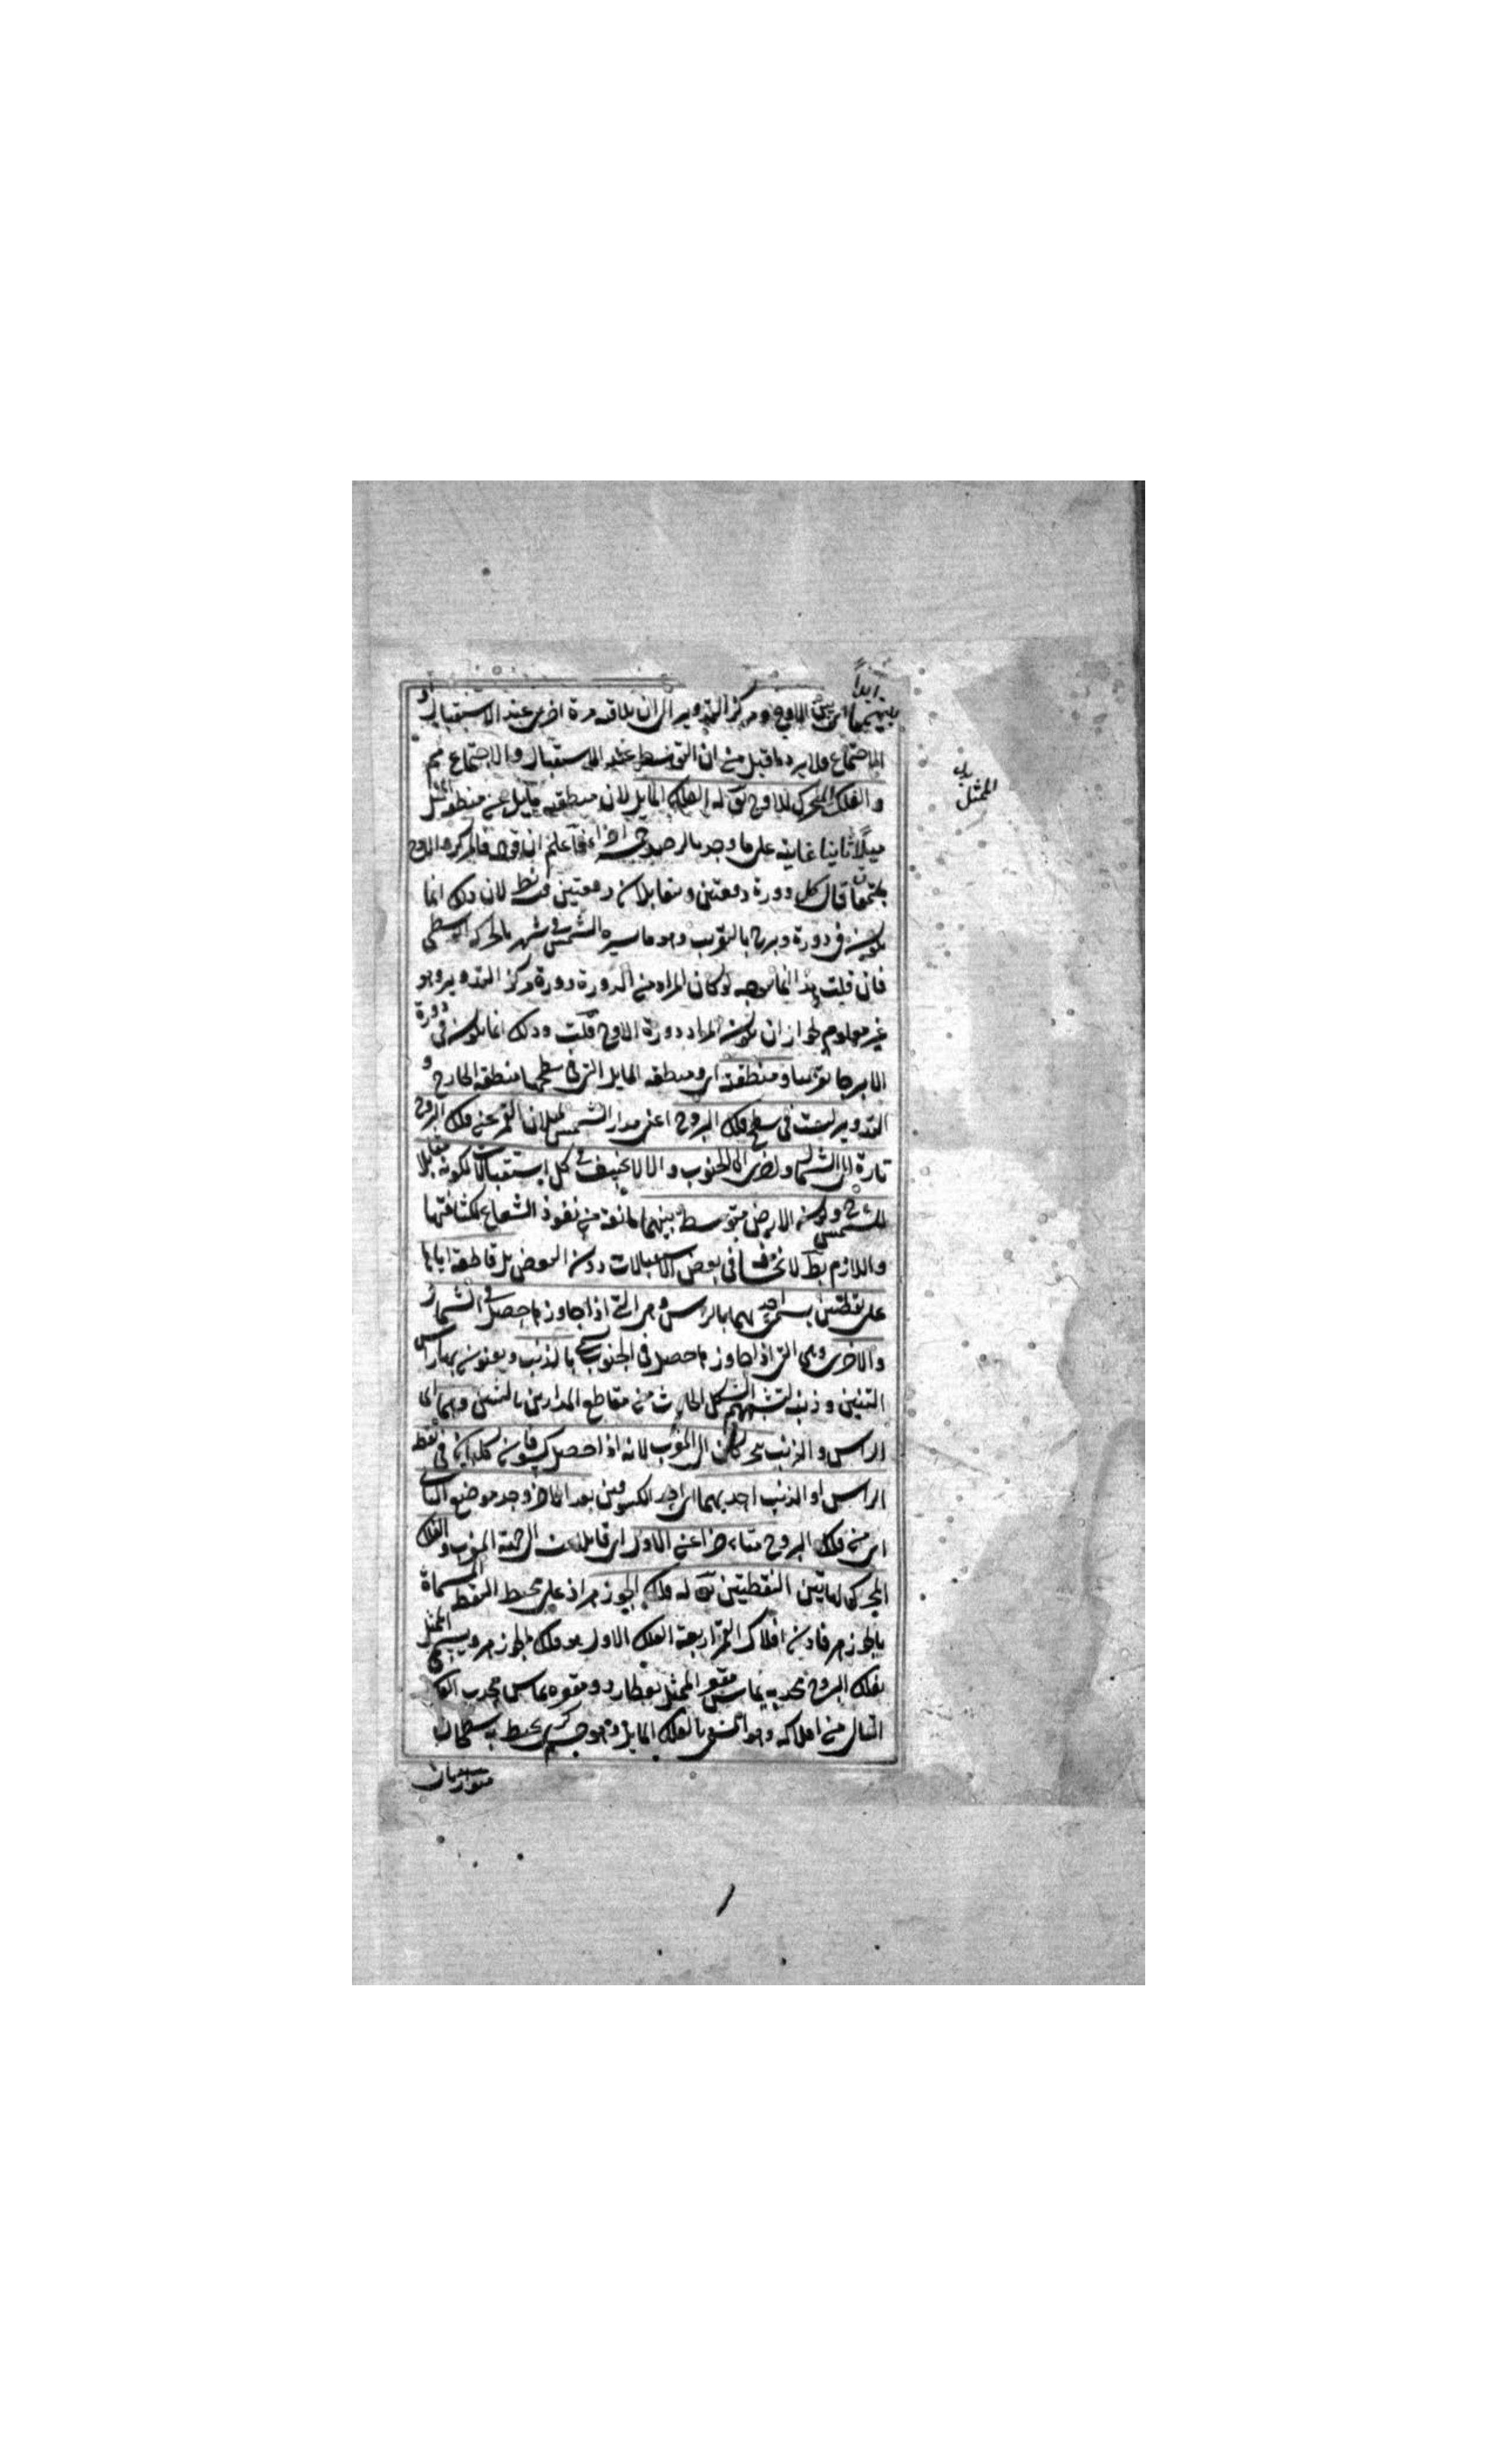 ابدا
بينهما اى بين الاوج ومركز التدوير الى ان يلاقيه مرة اخرى عند الاستقبال او
الاجتماع ولا يرد ما قيل من ان التوسط عند الاستقبال والاجتماع ثم
والفلك المحرك للاوج يق له الفلك المايل لان منطقته مايل عن منطقة الممثل
ميلا ثابتا غايته على ما وجد بالرصد اجزاء فاعلم ان قوله فالمركز والاوج
يجتمعان قال كل دورة دفعتين ويتقابلان دفعتين فيه نظر لان ذلك انما
يكون فى دورة وبرج بالتقريب وهو ما سيره الشمس فى شهر بالحركة الوسطى
فان قلت هذا انما يتوجه لو كان المراد من الدورة دورة مركز التدوير وهو
غير معلوم لجواز ان يكون المراد دورة الاوج قلت وذلك انما يكون فى دورة
الا برجا تقريبا ومنطقته اى ومنطقة المايل التى فى سطحها منطقة الخارج و
التدوير ليست فى سطح فلك البروج اعنى مدار الشمس لميلان القمر عن فلك البروج
تارة الى الشمال واخرى الى الجنوب والا لانخسف فى كل استقبالات لكونه مقابلا
للشمس ح وكون الارض متوسطة بينهما مانعة من نفوذ الشعاع لكثافتها
واللازم بط لانخسافه فى بعض الاستقبالات دون البعض بل قاطعة اياها
على نقطتين يسمى احديهما بالراس وهى التى اذا جاوزها حصل فى الشمال
والاخرى وهى التى اذا جاوزها حصل فى الجنوب يسمى بالذنب ويعنون بهما راس
التنين وذنبه لتشبيههم الشكل الحادث من تقاطع المدارين بالتنين وهما اى
الراس والذنب متحركان الى المغرب لانه اذا حصل كسوفان كليان فى نقطة
الراس او الذنب احديهما اى احد الكسوفين بعد الاخر وجد موضع الثانى
اى من فلك البروج متاخرا عن الاول اى قابلا الى جهة المغرب والفلك
المحرك لهاتين النقطتين يق له فلك الجوزهر اذ على محيطه النقطة المسماة
بالجوزهر فاذن افلاك القمر اربعة الفلك الاول هو فلك الجوزهر ويسمى الممثل
بفلك البروج محدبه يماس مقعر الممثل بعطارد ومقعره يماس محدب الفلك
الثانى من افلاكه وهو المسمى بالفلك المايل وهو جرم كرى يحيط به سطحان
متوازيان
الممثل